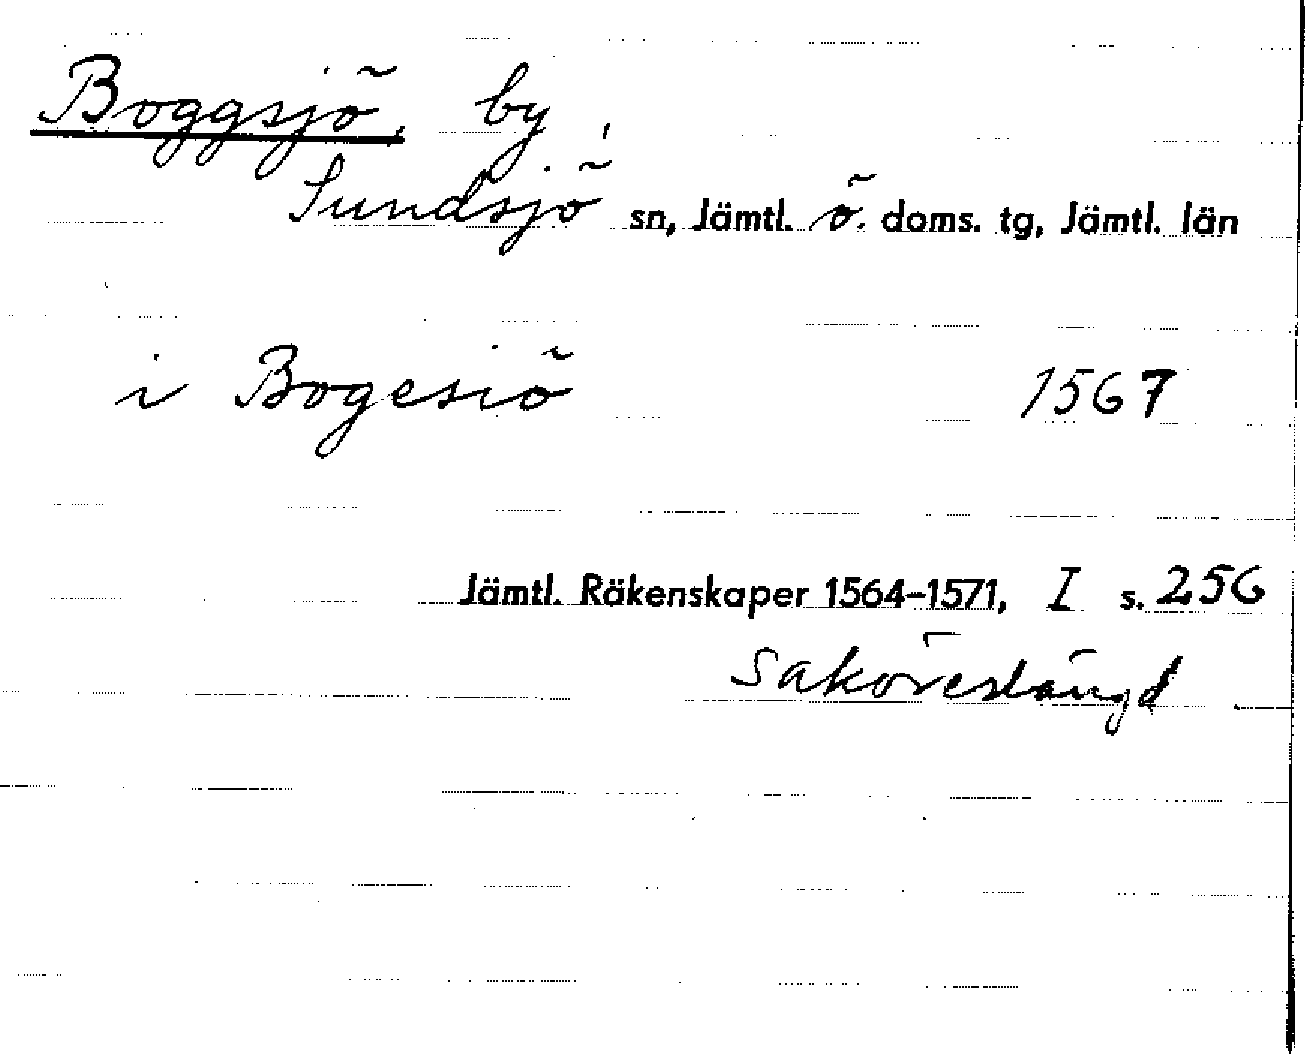 Boggsjö, by,
Sundsjö sn, Jämtl. ö. doms. tg, Jämtl. län
i Bogesiö 1567
Jämtl. Räkenskaper 1564–1571, I s. 256
Saköreslängd